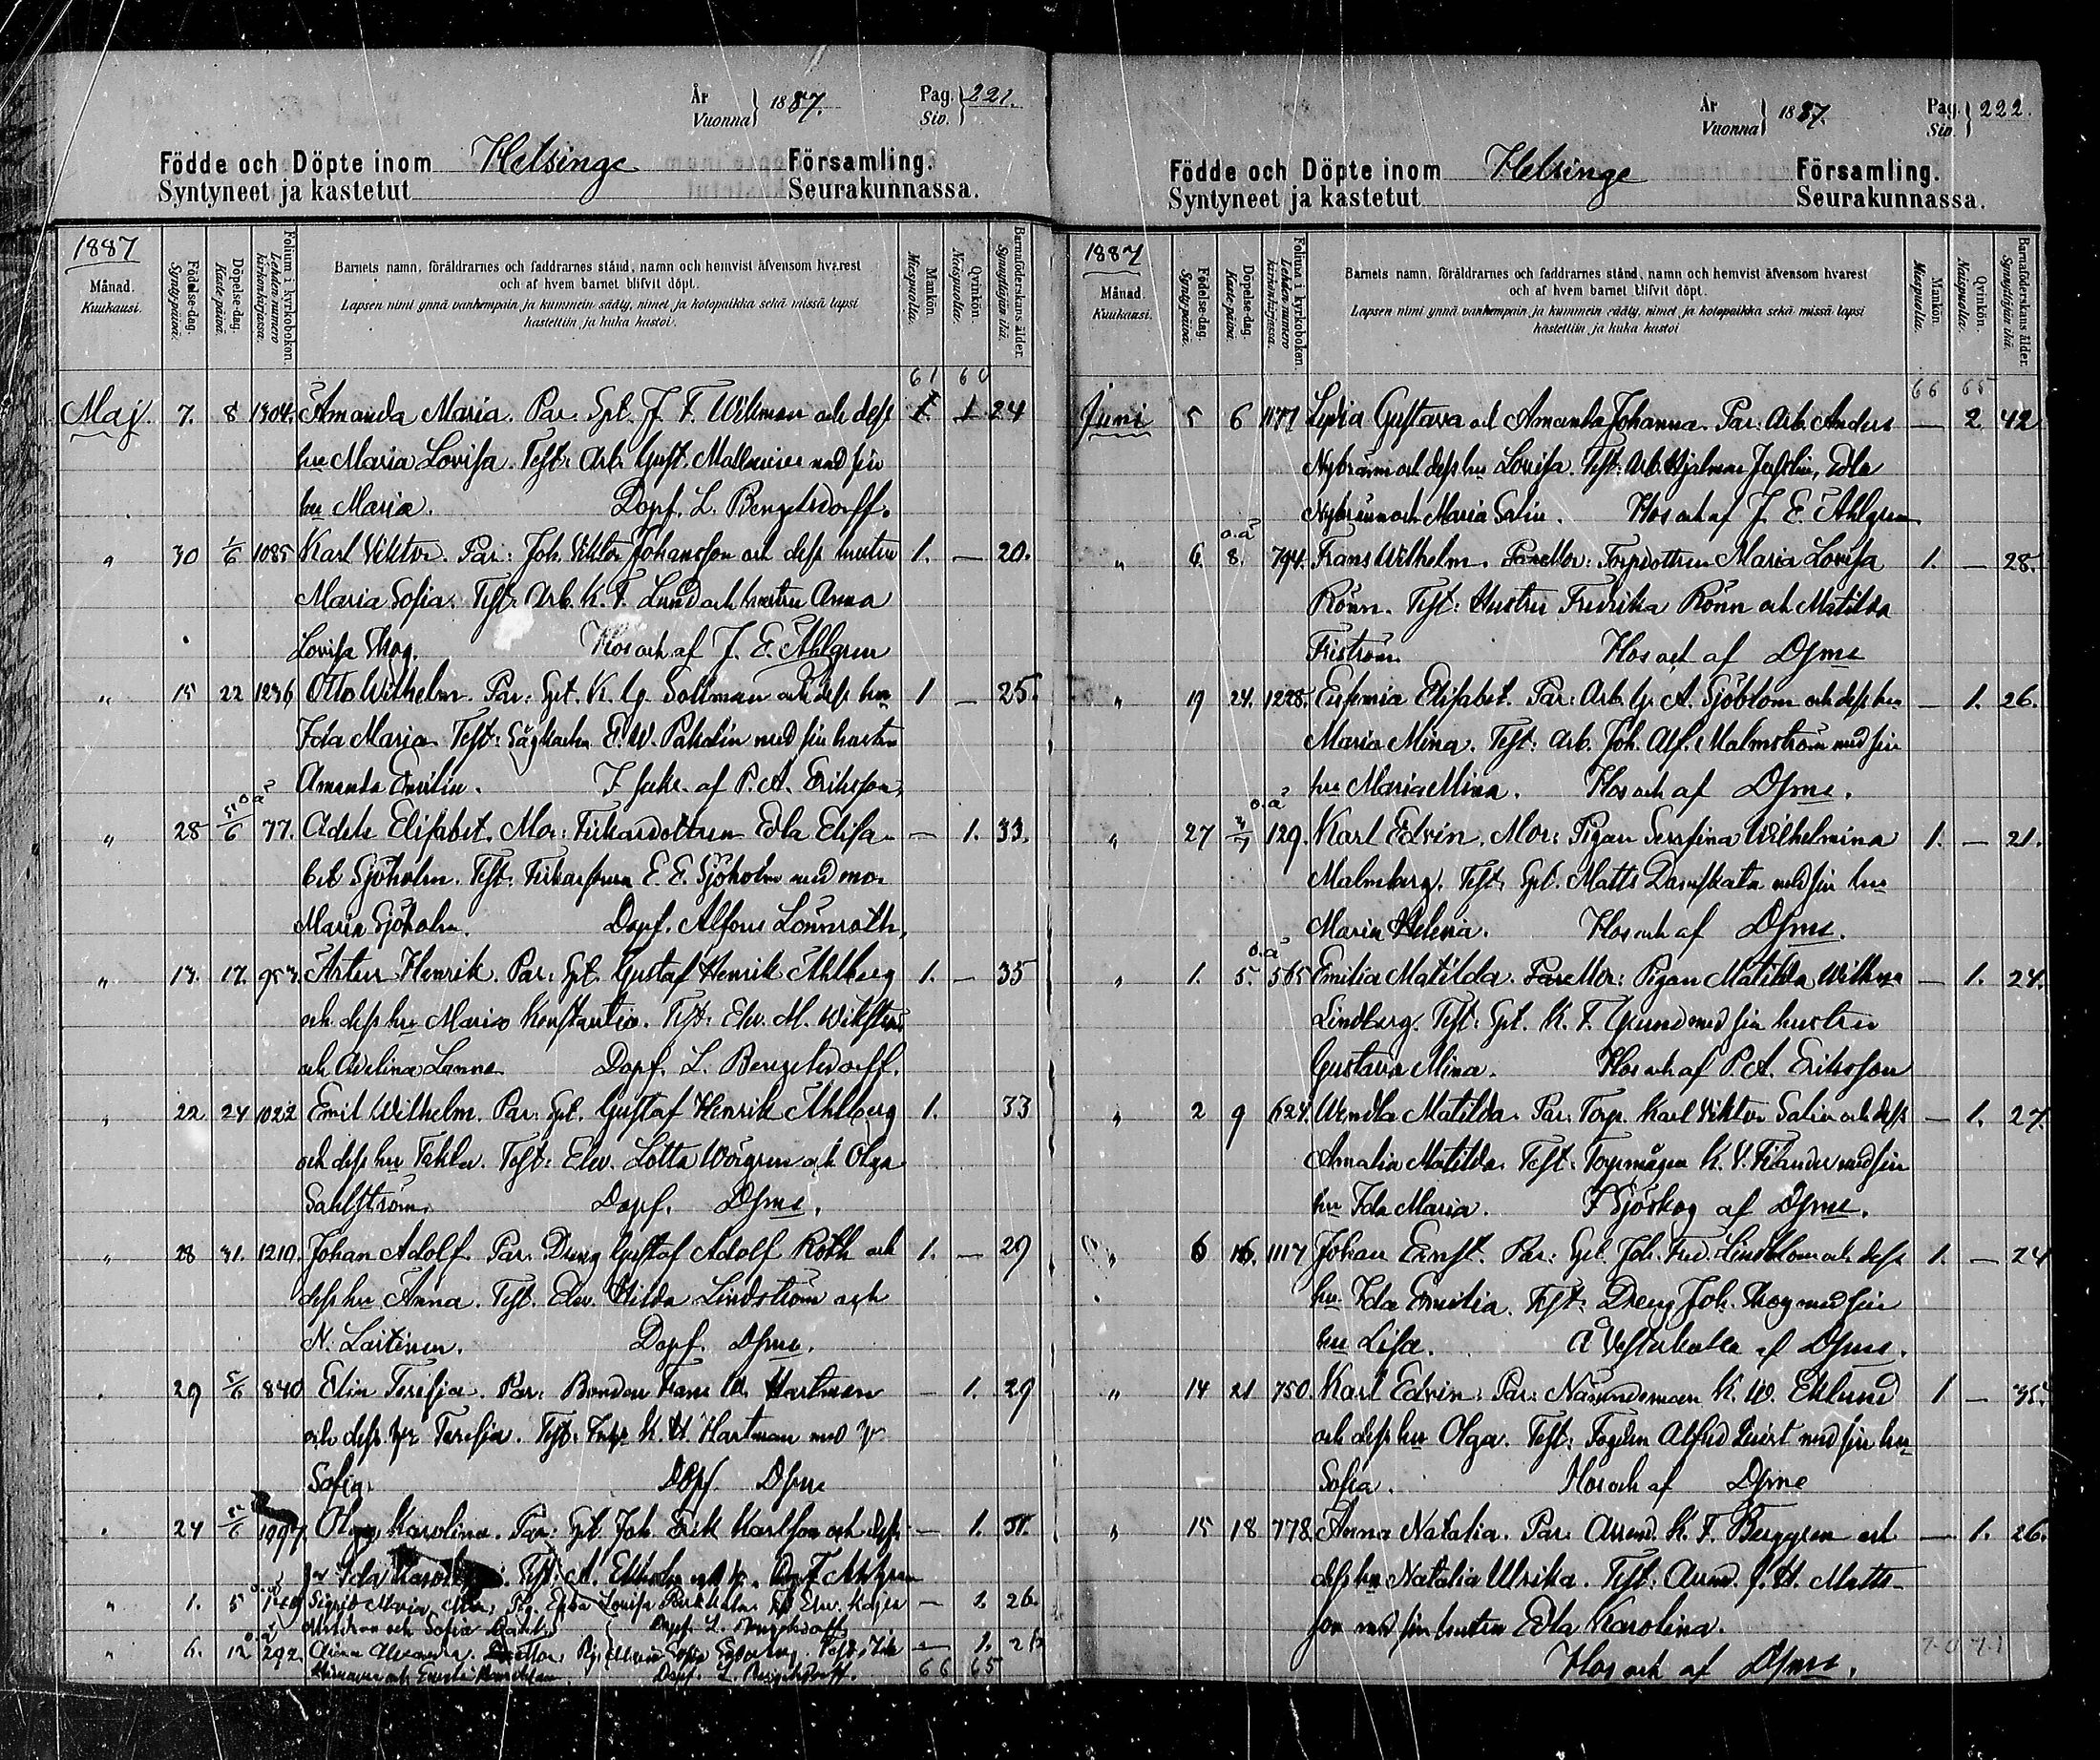 År Vuonna } 1887. Pag. Siv. } 221.
Födde och Döpte inom Helsinge Församling.
Syntyneet ja kastetut Seurakunnassa.
1887
Månad. Kuukausi.
Födelse-dag. Syntypäivä.
Döpelse-dag. Kastepäivä.
Folium i kyrkoboken. Lehden numero kirkonkirjassa.
Barnets namn, föräldrarnes och faddrarnes stånd, namn och hemvist äfvensom hvarest
och af hvem barnet blifvit döpt.
Lapsen nimi ynnä vanhempain ja kummein sääty, nimet ja kotopaikka sekä missä lapsi
hastettiin ja kuka kastoi.
Mankön. Miespuolia.
Qvinkön. Naispuolia.
Barnaföderskans ålder. Synnyttäjän ikä.
61 60
Maj. 7. 8 1304. Amanda Maria. Par. Spt. J. F. Wikman och dess 1 1 24
hu Maria Lovisa. Test: Arb. Gust. med sin
hu Maria. Dopf. L. Bengelsdorff.
" 30 1/6 1085 Karl Viktor. Par: Joh. Viktor Johansson och dess hustru 1. — 20.
Maria Sofia. Test: Arb. K. F. Lund och hustru Anna
Lovisa Skog. Hos och af J. E. Ahlgren
" 15 22 1236 Otto Wilhelm. Par: Spt. K. G. Sollman och dess hu 1 — 25.
Ida Maria. Test: E. W. Pahalin med sin hustru
Amanda Emilia. af P. A. Eriksson,
o.ä
" 28 5/6 77. Adele Elisabet. Mor: Fiskardottren Edla Elisa- — 1. 33.
bet Sjöholm. Test: E. E. Sjöholm med mor
Maria Sjöholm. Dopf. Alfons Lönnroth,
" 13. 17. 953. Artur Henrik. Par: Spt. Gustaf Henrik Ahlberg 1. — 35
och dess hu Maria Konstantia. Test: Elev. M. Wikström
och Avelina Lanne. Dopf. L. Bengelsdorff.
" 22 24 1022 Emil Wilhelm. Par: Spt. Gustaf Henrik Ahlberg 1. 33
och dess hu Tekla. Test: Elev. Lotta och Olga
Sahlström. Dopf. Dsme.
" 28 31. 1210. Johan Adolf. Par. Dreng Gustaf Adolf Roth och 1. — 29
dess hu Anna. Test. Elev. Hilda Lindström och
N. Laitinen. Dopf. Dsme.
" 29 5/6 840 Elin Teresia. Par: Bonden Frans W. Hartman — 1. 29
och dess hu Teresia. Test: K. H. Hartman med hu
Sofia. Dopf. Dsme
" 24 5/6 1097. Olga Karolina. Par: Spt. Joh. Erik Karlsson och dess — 1. 31.
hu Ida Test: A. Ekholm
" 1. 5 Sigrid Maria. Mor: Pig. Lovisa Elev. Kajsa — 1. 26.
och Sofia Dopf. L. Bengelsdorff
" 6. 12 292. Mor: Pig. Maria Sofia Test: — 1.
och Dopf. L. Bengelsdorff. 66 65
År Vuonna } 1887. Pag. Siv. } 222.
Födde och Döpte inom Helsinge Församling.
Syntyneet ja kastetut Seurakunnassa.
1887
Månad. Kuukausi.
Födelse-dag. Syntypäivä.
Döpelse-dag. Kastepäivä.
Folium i kyrkoboken. Lehden numero kirkonkirjassa.
Barnets namn, föräldrarnes och faddrarnes stånd, namn och hemvist äfvensom hvarest
och af hvem barnet blifvit döpt.
Lapsen nimi ynnä vanhempain ja kummein sääty, nimet ja kotopaikka sekä missä lapsi
kastettiin ja kuka kastoi
Mankön. Miespuolia.
Qvinkön. Naispuolia.
Barnaföderskans ålder. Synnyttäjän ikä.
66 65
Juni 5 6 1177 Lydia Gustava och Amanda Johanna. Par: Arb. Anders — 2. 42
och dess hu Lovisa. Test: Arb. Hjalmar Edla
och Maria Salin. Hos och af J. E. Ahlgren
o.ä
" 6. 8. 794. Frans Wilhelm. Mor: Torpdottren Maria Lovisa 1. — 28.
Rönn. Test: Hustru Fredrika Rönn och Matilda
Friström. Hos och af Dsme
" 19 24. 1228. Eufemia Elisabet. Par: Arb. G. A. Sjöblom och dess hu — 1. 26.
Maria Mina. Test: Arb. Joh. Alf. Malmström med sin
hu Maria Mina. Hos och af Dsme.
o.ä
" 27 129. Karl Edvin. Mor: Pigan Serafina Wilhelmina 1. — 21.
Malmberg. Test: Spt. Matts Danskata med sin hu
Maria Helena. Hos och af Dsme.
o.ä
" 1. 5. 565 Emilia Matilda. Mor: Pigan Matilda — 1. 24.
Lindberg. Test: Spt. K. F. Grund med sin hustru
Gustava Mina. Hos och af P. A. Eriksson
" 2 9 624. Wendla Matilda. Par: Torp. Karl Viktor Salin och dess — 1. 27.
Amalia Matilda. Test: Torpmågen K. V. Filander med sin
hu Ida Maria. I Sjöskog af Dsme.
" 6 16. 1117 Johan Ernst. Par: Spt. Joh. Fred. Lindblom och dess 1. — 24
hu Ida Emilia. Test: Dreng Joh. Skog med sin
hu Lisa. Å Vesterkulla af Dsme.
" 14 21 750. Karl Edvin. Par: Nämndeman K. W. Eklund 1 — 35.
och dess hu Olga. Test: Alfred med sin hu
Sofia. Hos och af Dsme
" 15 18 778. Anna Natalia. Par: Arrend. K. F. Berggren och — 1. 26.
dess hu Natalia Ulrika. Test: Arrend. J. H. Matts-
son med sin hustru Edla Karolina.
Hos och af Dsme.
70 71